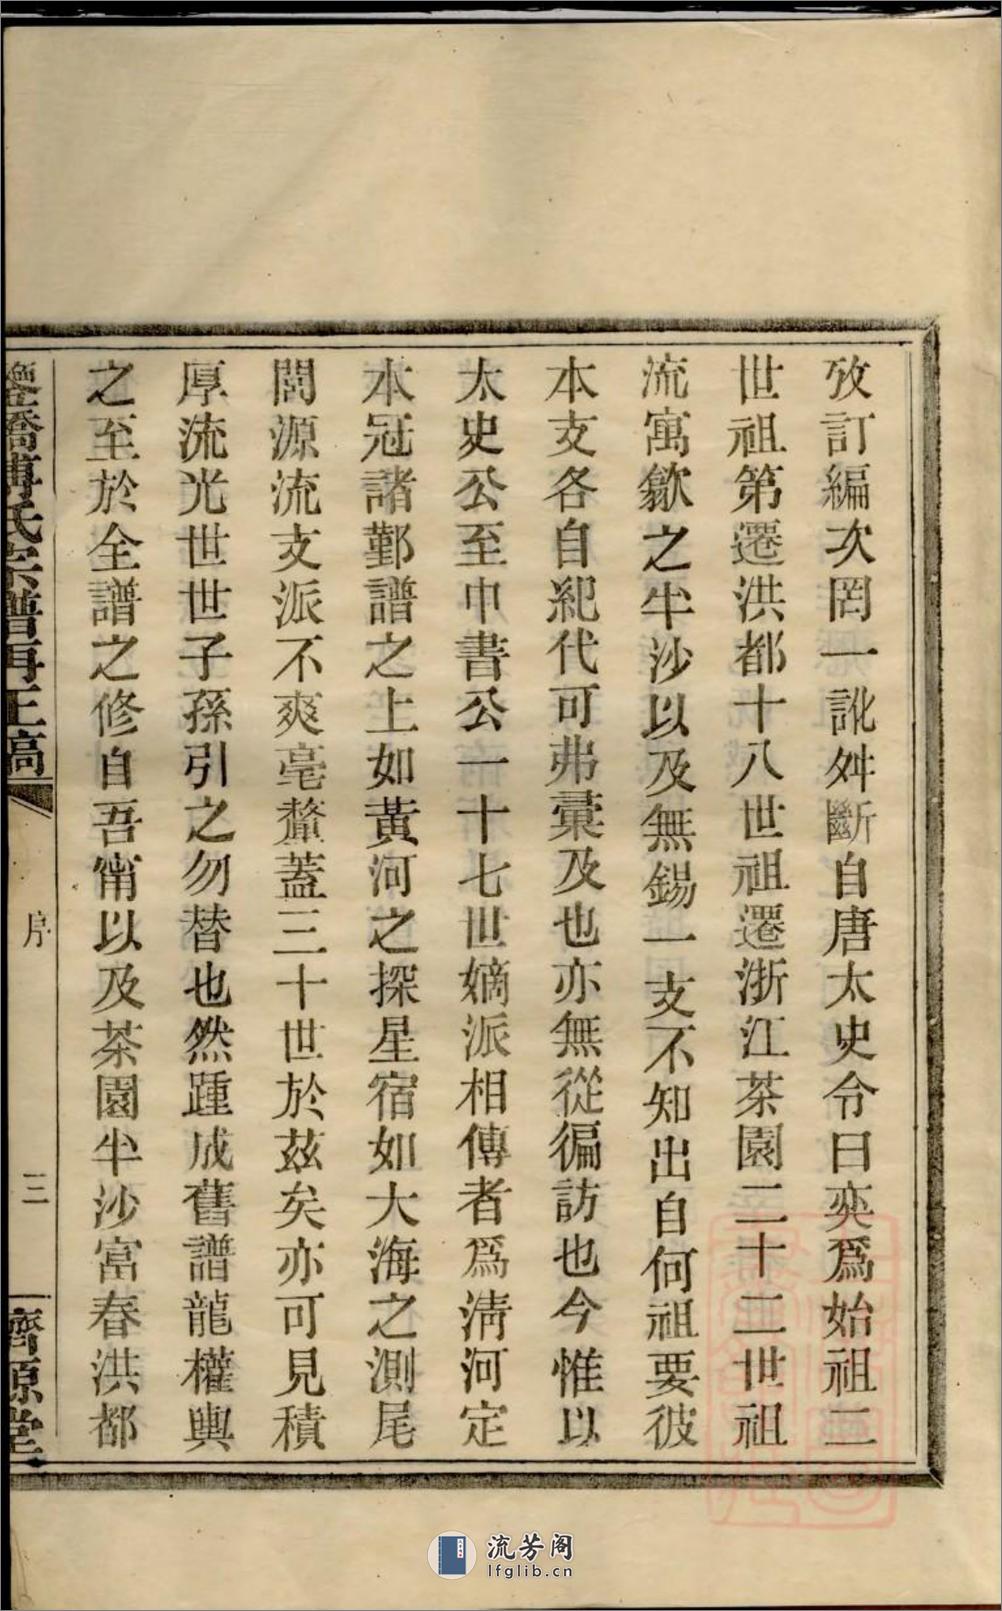 攷訂編次罔一訛舛斷自唐太史令曰奕爲始祖二
世祖第遷洪都十八世祖遷浙江茶園二十二世祖
流寓歙之半沙以及無錫一支不知出自何祖要彼
本支各自紀代可弗彙及也亦無從徧訪也今惟以
太史公至中書公一十七世嫡派相傳者爲淸河定
本冠諸鄞譜之上如黃河之探星宿如大海之測尾
閭源流支派不爽毫釐蓋三十世於茲矣亦可見積
厚流光世世子孫引之勿替也然踵成舊譜龍權輿
之至於全譜之修自吾甯以及茶園半沙富春洪都
橋傅氏宗譜再正稿
序
三
濟源堂
流芳阁
lfglib.cn